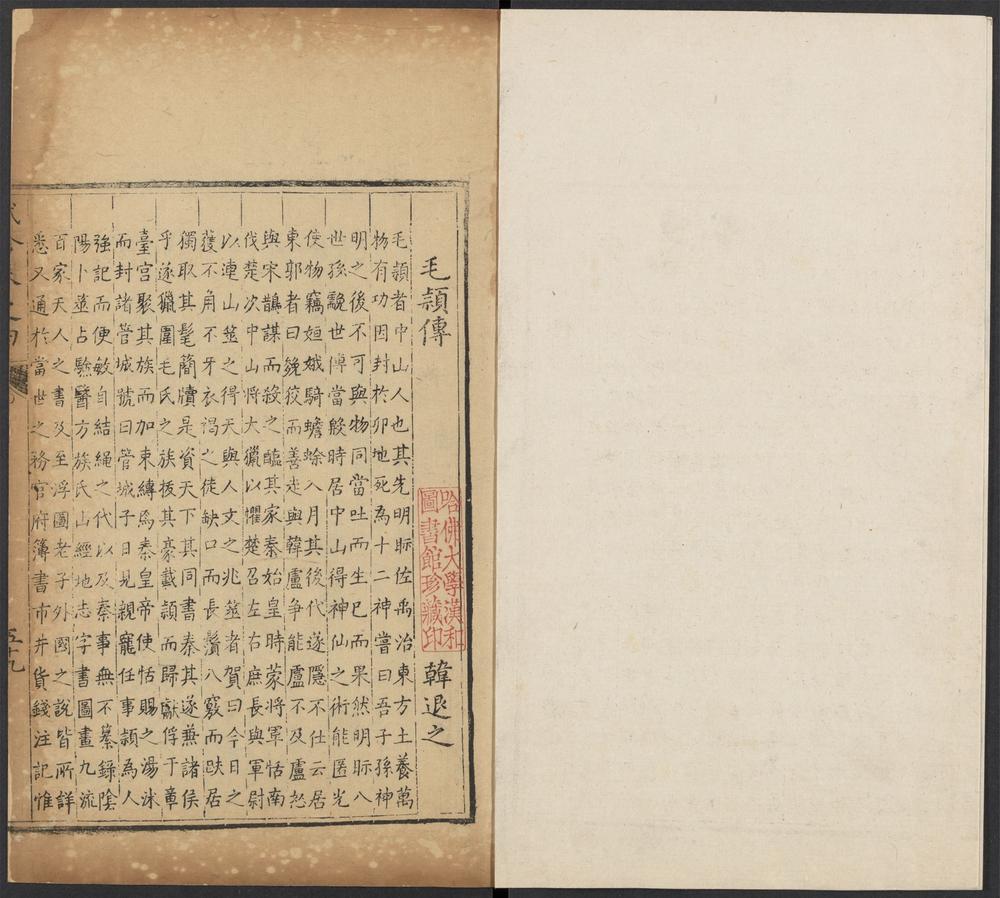 毛頴傳 韓退之
哈佛大學漢和
圖書館珍藏印
毛頴者中山人也其先明眎佐禹治東方土養萬
物有功因封於卯地死為十二神嘗曰吾子孫神
明之後不可與物同當吐而生已而果然明眎八
世孫䨲世傳當殷時居中山得神仙之術能匿光
使物竊姮娥騎蟾蜍入月其後代遂隱不仕云居
東郭者曰㕙狡而善走與韓盧争能盧不及盧怒
與宋鵲謀而殺之醢其家秦始皇時蒙將軍恬南
伐楚次中山將大獵以懼楚召左右庶長與軍尉
以連山筮之得天與人文之兆筮者賀曰今日之
獲不角不牙衣褐之徒缺口而長鬚八竅而趺居
獨取其髦簡牘是資天下其同書秦其遂兼諸侯
乎遂獵圍毛氏之族拔其豪載頴而歸獻俘于章
臺宮聚其族而加束縛焉秦皇帝使恬賜之湯沐
而封諸管城號曰管城子日見親寵任事頴為人
強記而便敏自結繩之代以及秦事無不纂錄陰
陽卜筮占驗醫方族氏山經地志字書圖畫九流
百家天人之書及至浮圖老子外國之說皆所詳
悉又通於當世之務官府簿書市井貨錢注記惟
五十九